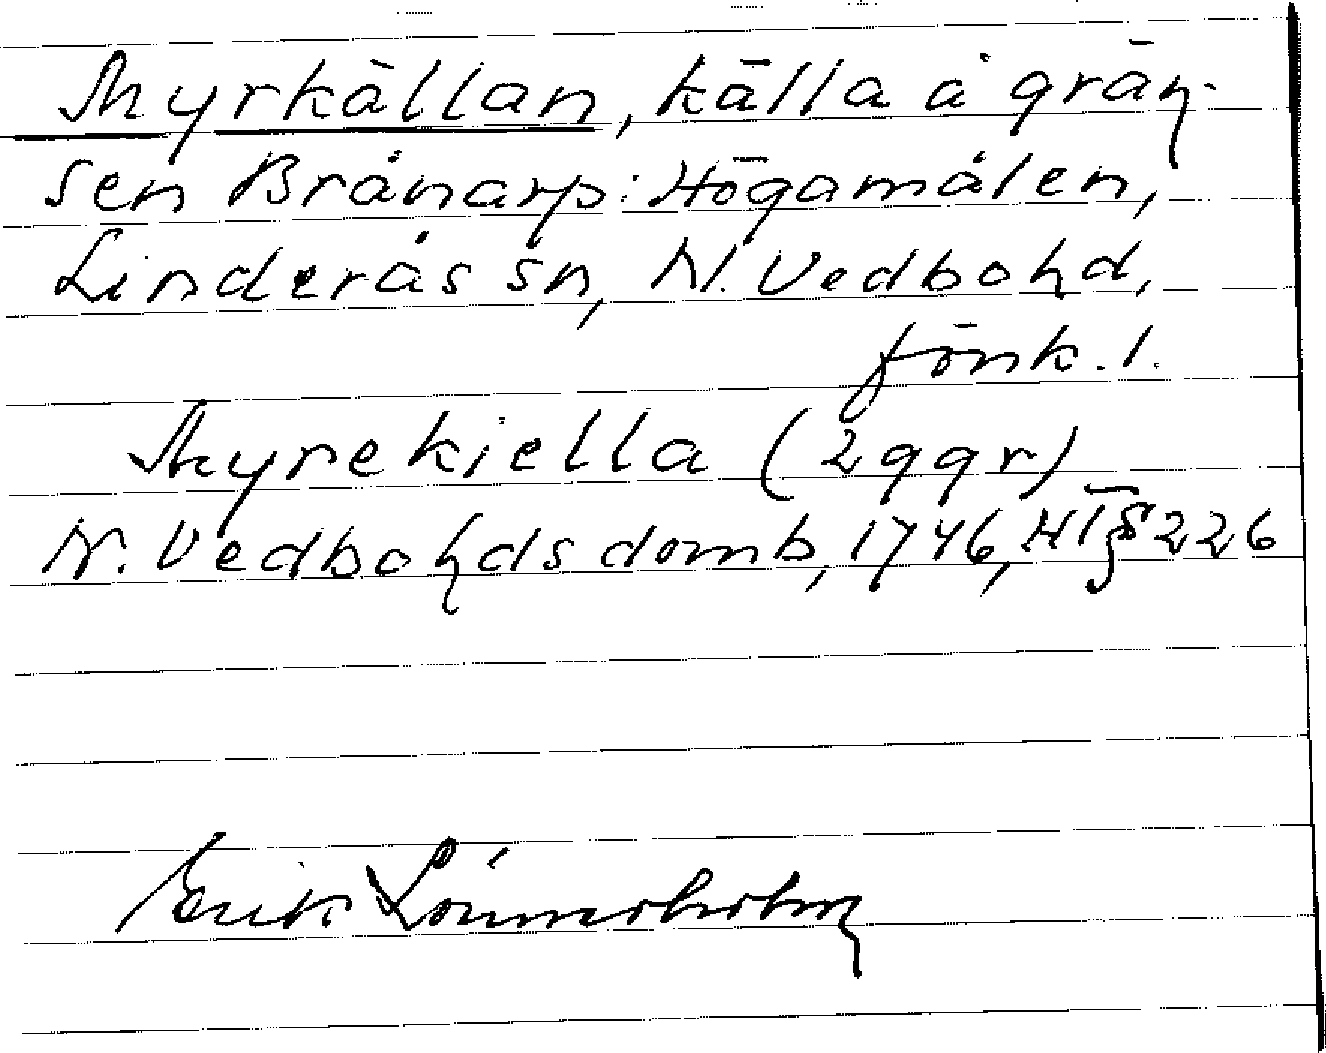 Myrkällan, källa å grän-
sen Brånarp: Högamålen,
Linderås sn, N. Vedbo hd,
Jönk. l.
Myrekiella (2 ggr)
N. Vedbo hds domb, 1746, HT § 226
Erik Lönnerholm